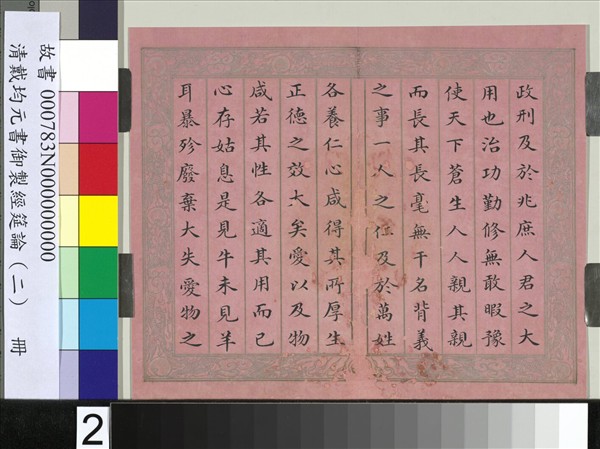 政刑及於兆庶人君之大
用也治功勤修無敢暇豫
使天下蒼生人人親其親
而長其長毫無干名背義
之事一人之仁及於萬姓
各養仁心咸得其所厚生
正德之效大矣愛以及物
咸若其性各適其用而已
心存姑息是見牛未見羊
耳暴殄廢棄大失愛物之
故書 000783N000000000
清戴均元書御製經筵論(二) 冊
2